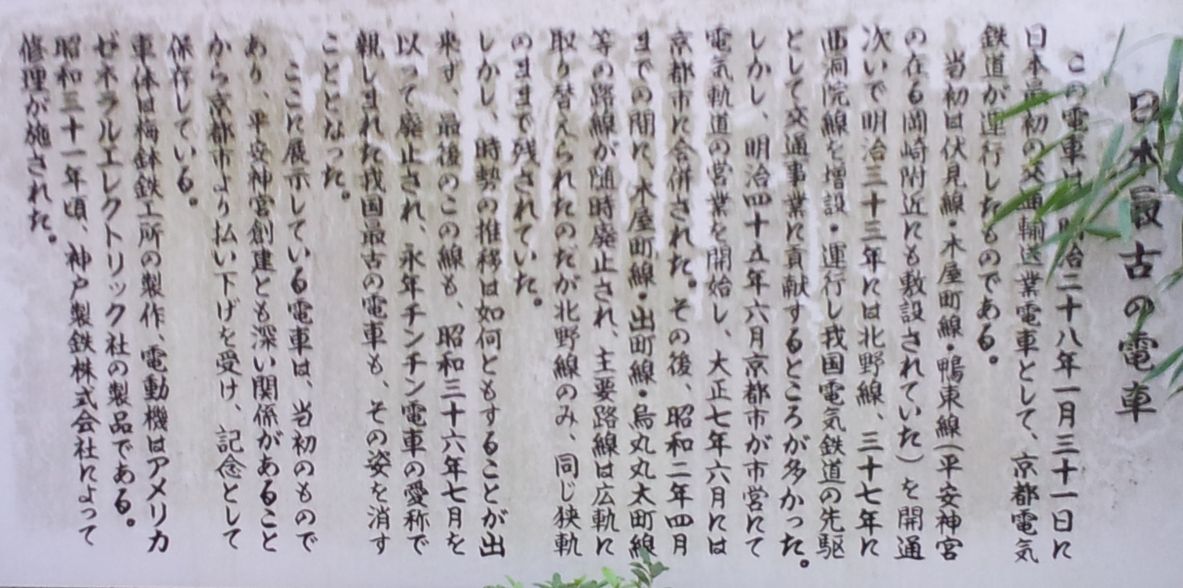 日本最古の電車
この電車は明治二十八年一月三十一日に
日本最初の交通輸送業電車として、京都電気
鉄道が運行したものである。
当初は伏見線・木屋町線・鴨東線(平安神宮
の在る岡崎附近にも敷設されていた)を開通
次いで明治三十三年には北野線、三十七年に
西洞院線を増設・運行し我国電気鉄道の先駆
として交通事業に貢献するところが多かった。
しかし、明治四十五年六月京都市が市営にて
電気軌道の営業を開始し、大正七年六月には
京都市に合併された。その後、昭和二年四月
までの間に、木屋町線・出町線・烏丸丸太町線
等の路線が随時廃止され、主要路線は広軌に
取り替えられたのだが北野線のみ、同じ狭軌
のままで残されていた。
しかし、時勢の推移は如何ともすることが出
来ず、最後のこの線も、昭和三十六年七月を
以って廃止され、永年チンチン電車の愛称で
親しまれた我国最古の電車も、その姿を消す
こととなった。
ここに展示している電車は、当初のもので
あり、平安神宮創建とも深い関係があること
から京都市より払い下げを受け、記念として
保存している。
車体は梅鉢鉄工所の製作、電動機はアメリカ
ゼネラルエレクトリック社の製品である。
昭和三十一年頃、神戸製鉄株式会社によって
修理が施された。